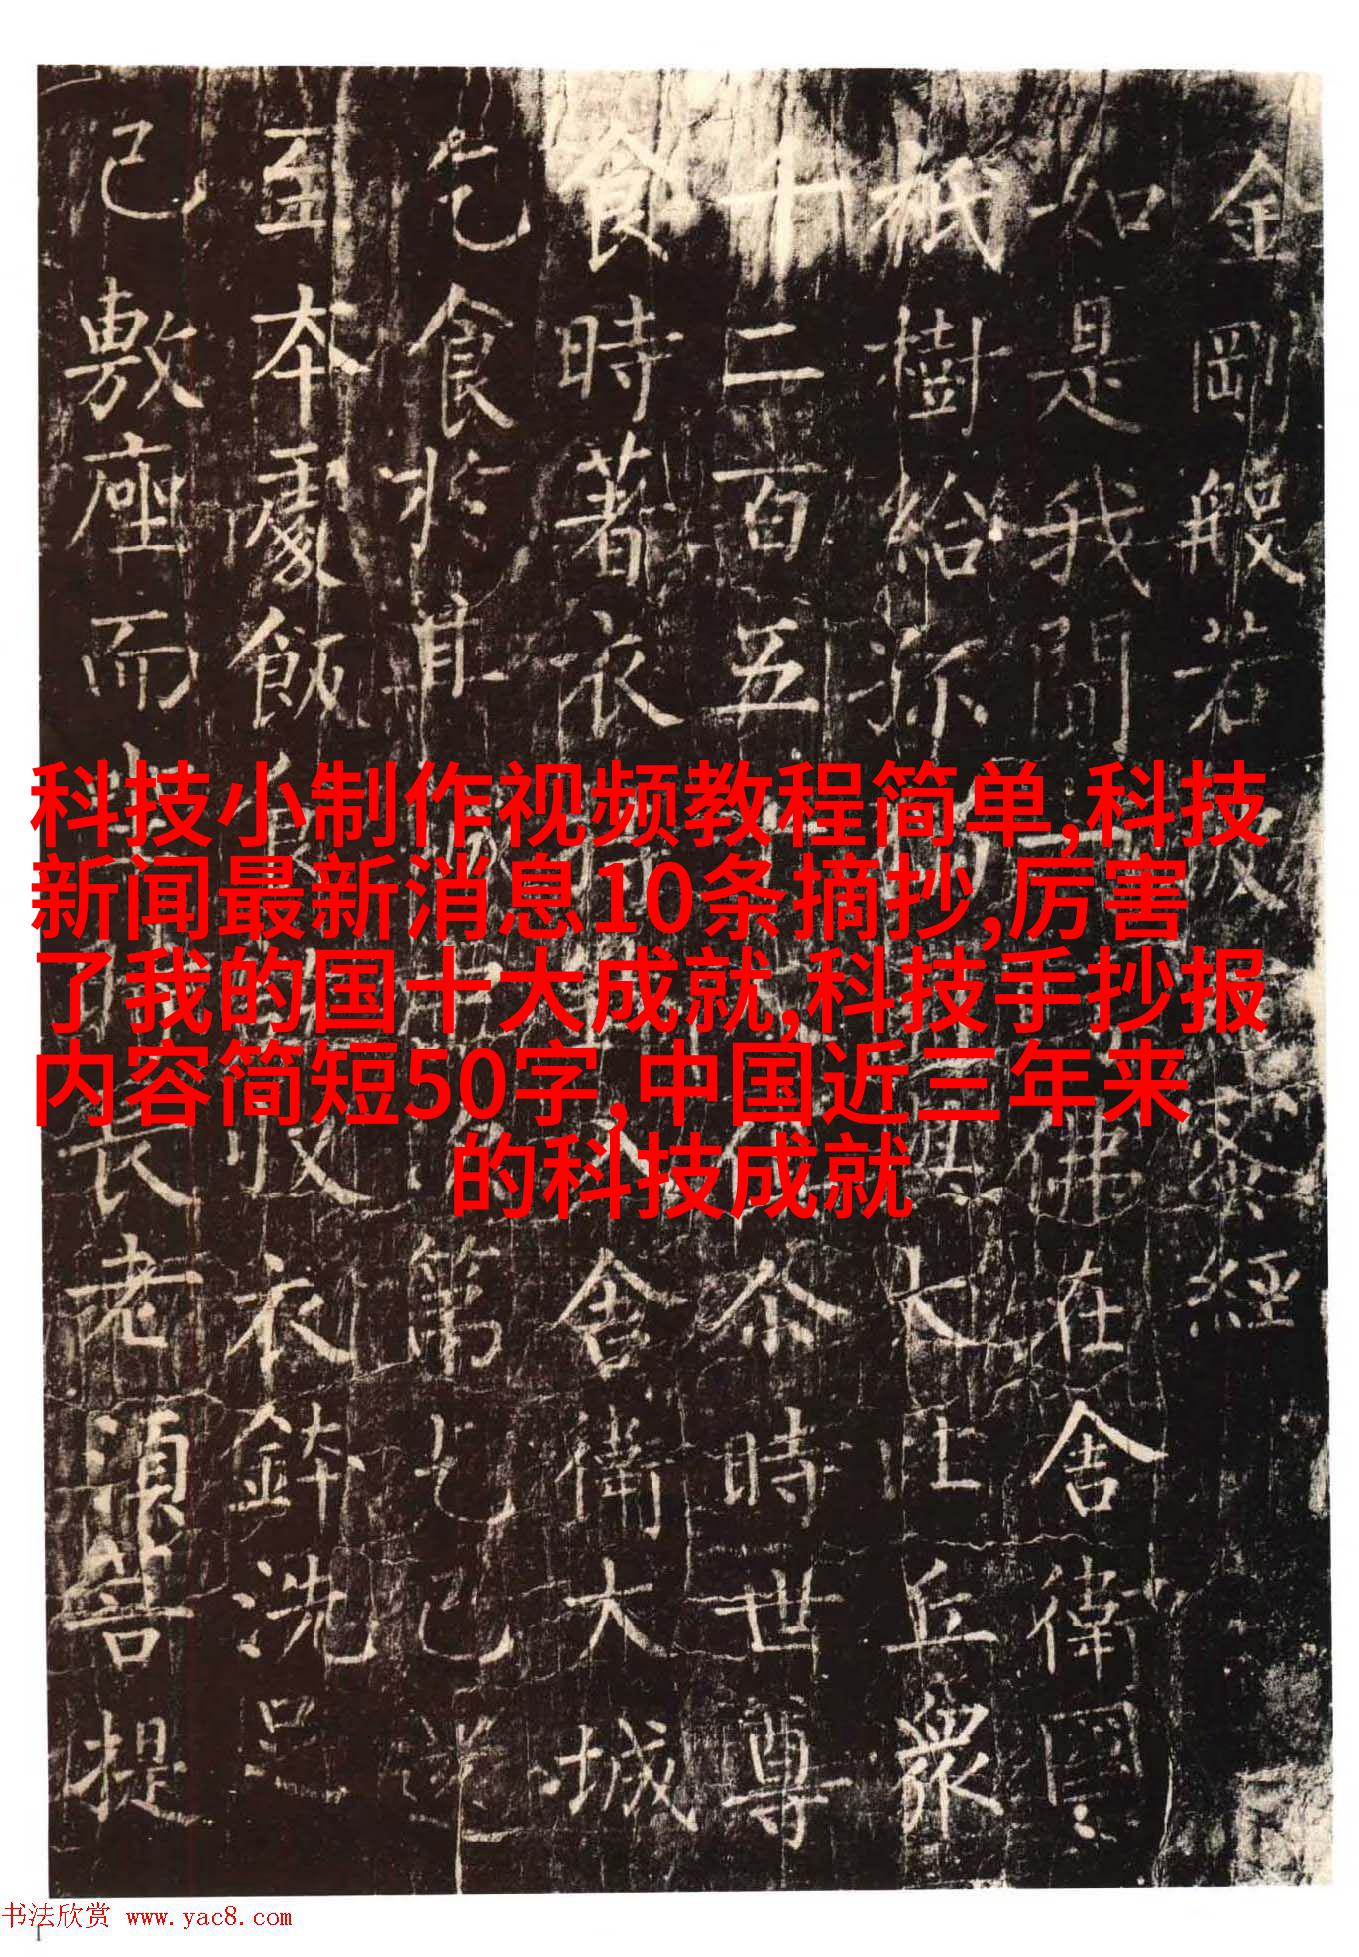 金剛般若波蜜經
如是我聞佛在舍衛國
祇樹給孤大比丘衆
千二百五尒時世尊
食時著衣舍衛大城
乞食於其第乞已還
至本處飯食收衣鉢洗足
已敷座而坐長老須菩提
科技小制作视频教程简单,科技
新闻最新消息10条摘抄,厉害
了我的国十大成就,科技手抄报
内容简短50字,中国近三年来
的科技成就
书法欣赏 www.yac8.com